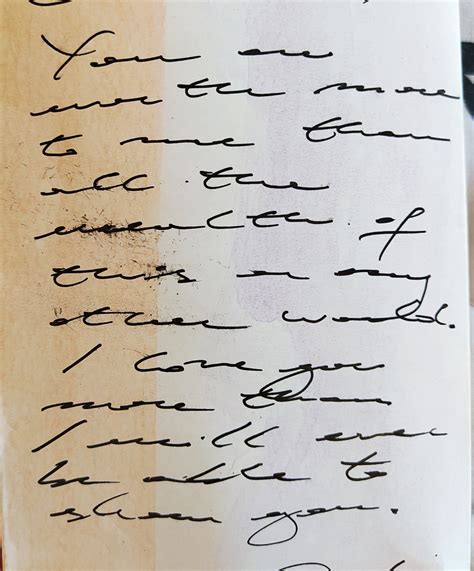 You are
worth more
to me than
all the
wealth of
this or any
other world.
I love you
more than
I will ever
be able to
show you.